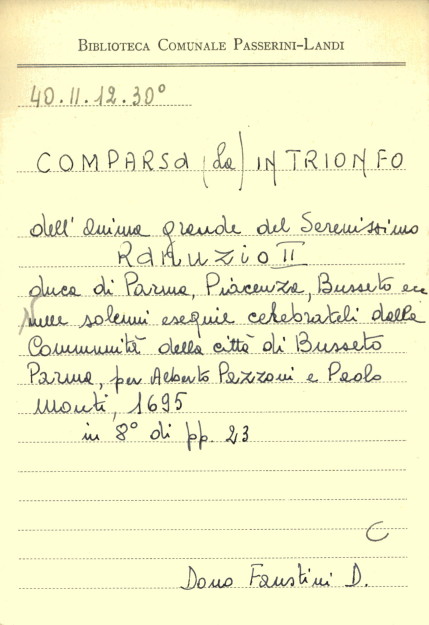 BIBLIOTECA COMUNALE PASSERINI-LANDI
40.II.12.30°
COMPARSA (La) IN TRIONFO
dell'Anima grande del Serenissimo
RANUZIO II
duca di Parma, Piacenza, Busseto ecc
nelle solenni esequie celebrateli dalla
Communità della città di Busseto
Parma, per Alberto Pazzoni e Paolo
Monti, 1695
in 8° di pp. 23
C
Dono Faustini D.